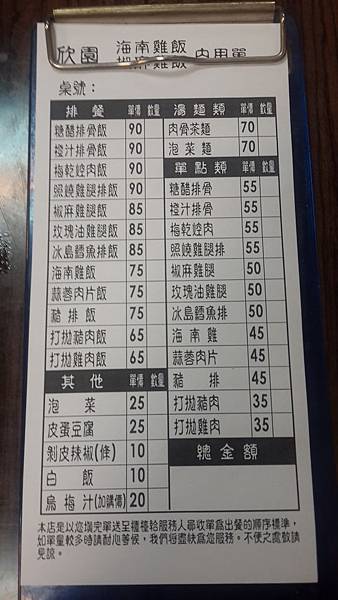 欣園 海南雞飯 內用單
椒麻雞飯
桌號：
排餐 單價 數量
糖醋排骨飯 90
橙汁排骨飯 90
梅乾焢肉飯 90
照燒雞腿排飯 90
椒麻雞腿飯 85
玫瑰油雞腿飯 85
冰島鱈魚排飯 85
海南雞飯 75
蒜蓉肉片飯 75
豬排飯 75
打拋豬肉飯 65
打拋雞肉飯 65
其他 單價 數量
泡菜 25
皮蛋豆腐 25
剝皮辣椒(條) 10
白飯 10
烏梅汁(加購價) 20
湯麵類 單價 數量
肉骨茶麵 70
泡菜麵 70
單點類 單價 數量
糖醋排骨 55
橙汁排骨 55
梅乾焢肉 55
照燒雞腿排 55
椒麻雞腿 50
玫瑰油雞腿 50
冰島鱈魚排 50
海南雞 45
蒜蓉肉片 45
豬排 45
打拋豬肉 35
打拋雞肉 35
總金額
本店是以您填完單送至櫃檯給服務人尋收單為出餐的順序標準，
如單量較多時請耐心等候，我們將盡快為您服務。不便之處敬請
見諒。